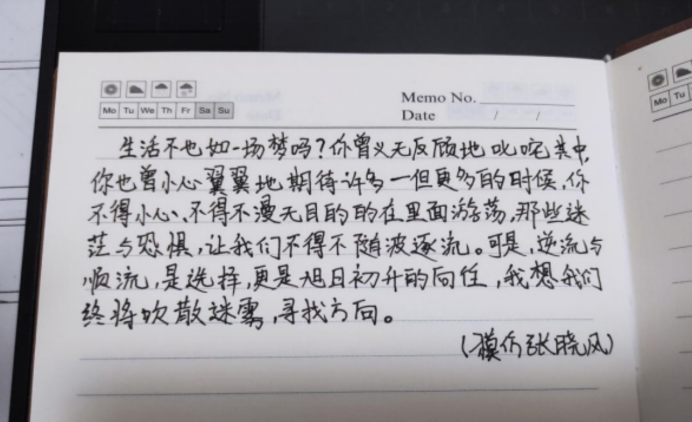 Mo Tu We Th Fr Sa Su
Memo No.
Date / /
生活不也如一场梦吗？你曾义无反顾地叱咤其中，
你也曾小心翼翼地期待许多一但更多的时候，你
不得小心、不得不漫无目的的在里面游荡，那些迷
茫与恐惧，让我们不得不随波逐流。可是，逆流与
顺流，是选择，更是旭日初升的向往，我想我们
终将吹散迷雾，寻找方向。
（模仿张晓风）
Mo Tu